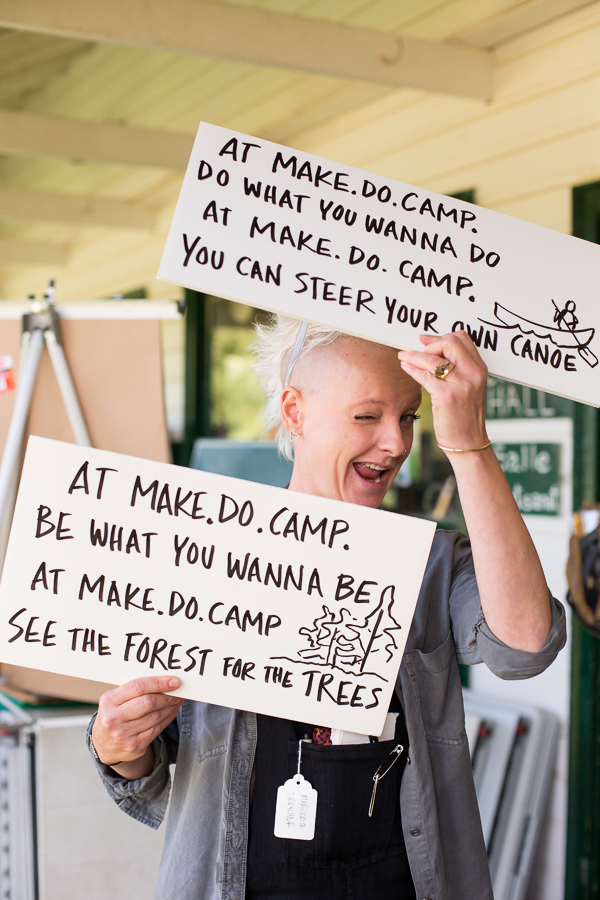 AT MAKE.DO.CAMP.
DO WHAT YOU WANNA DO
AT MAKE.DO.CAMP.
YOU CAN STEER YOUR OWN CANOE
HALL
AT MAKE.DO.CAMP.
BE WHAT YOU WANNA BE
AT MAKE.DO.CAMP
SEE THE FOREST FOR THE TREES